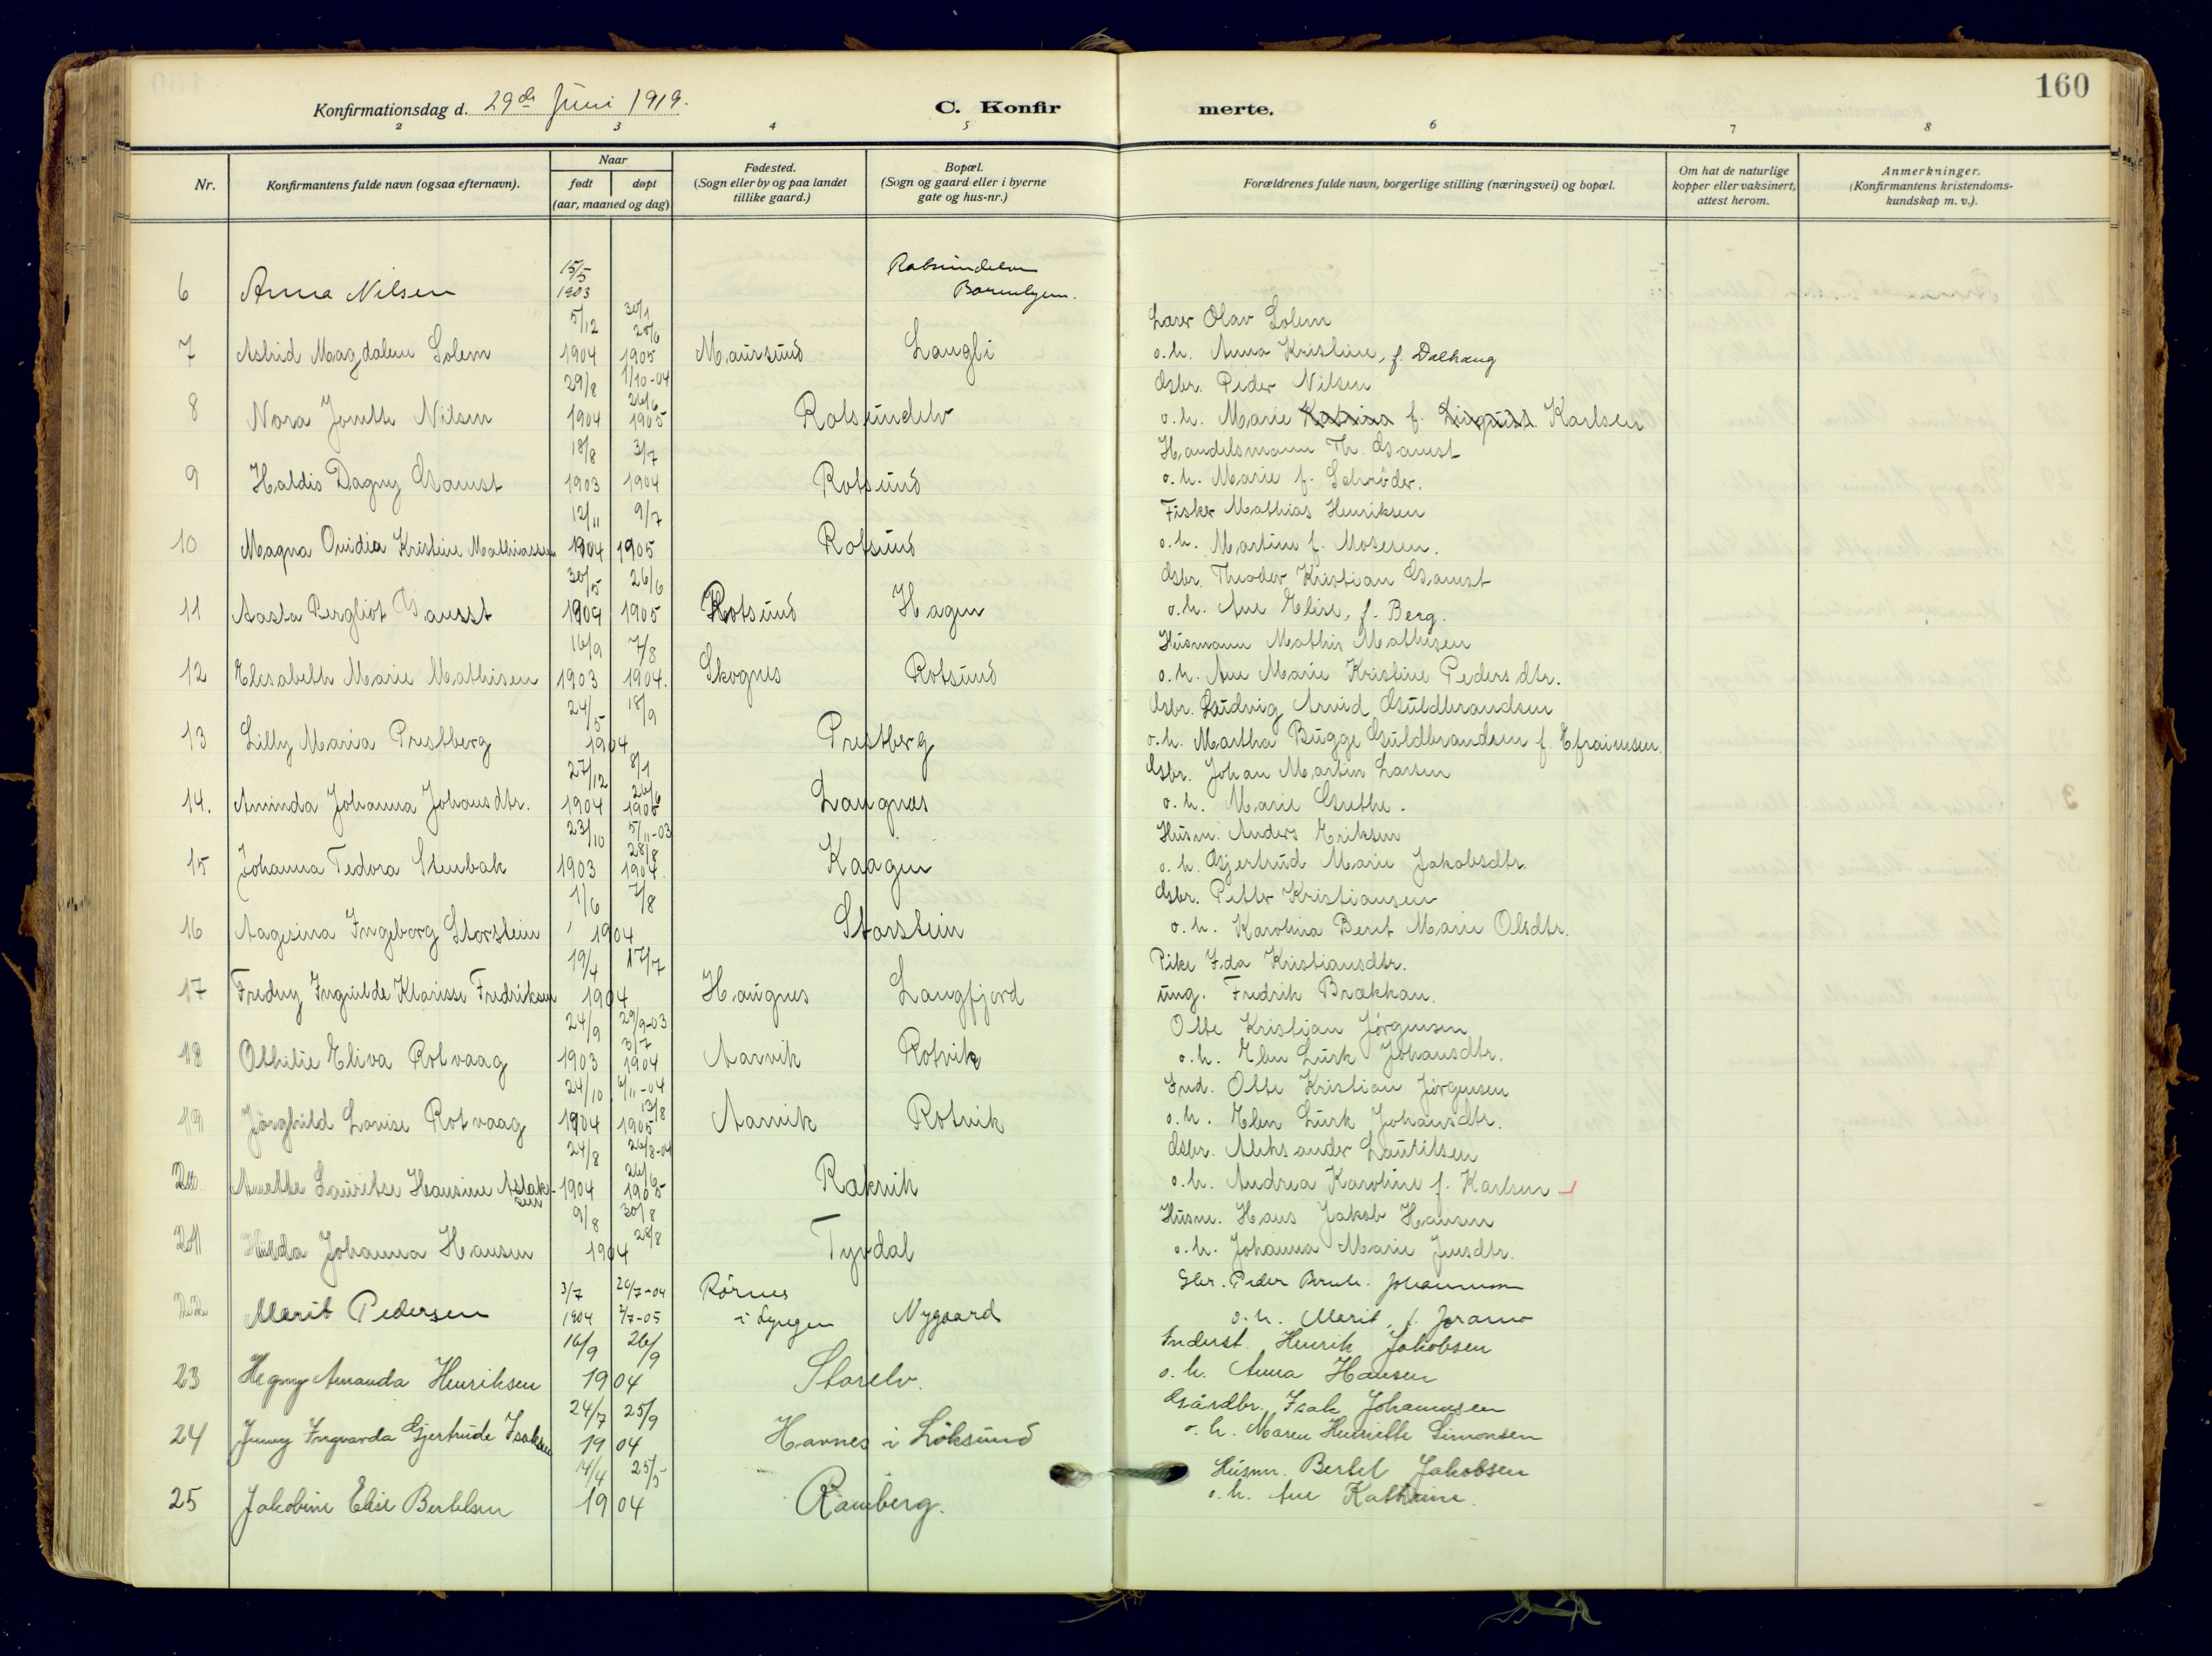 160
Konfirmationsdag d. 29de Juni 1919.
C. Konfir merte.
2 3 4 5 6 7 8
Nr.
Konfirmantens fulde navn (ogsaa efternavn).
Naar
født døpt
(aar, maaned og dag)
Fødested.
(Sogn eller by og paa landet
tillike gaard.)
Bopæl.
(Sogn og gaard eller i byerne
gate og hus-nr.)
Forældrenes fulde navn, borgerlige stilling (næringsvei) og bopæl.
Om hat de naturlige
kopper eller vaksinert,
attest herom.
Anmerkninger.
(Konfirmantens kristendoms-
kundskap m. v.).
15/5
6 Anna Nilsen 1903
5/12 30/1 25/6 Lærer Olav Solem
7 Astrid Magdalene Solem 1904 1905 Maursund Langli o. h. Anna Kristine, f. Dalhaug
29/8 1/10-04 26/6 Gsbr. Peder Nilsen
8 Nora Jonette Nilsen 1904 1905 Rotsundelv o. h. Marie f. Karlsen
18/8 3/7 Handelsmann Th. Gamst
9 Haldis Dagny Gamst 1903 1904 Rotsund o. h. Marie f. Schrøder.
12/11 9/7 Fisker Mathias Henriksen
10 Magna Ovidia Kristine Mathiassen 1904 1905 Rotsund o. h. Martine f. Mosesen.
30/5 26/6 Gsbr. Theodor Kristian Gamst
11 Aasta Bergliot Gamst 1904 1905 Rotsund Hagen o. h. Ane Elise, f. Berg.
16/9 7/8 Husmann Mathis Mathisen
12 Elisabeth Marie Mathisen 1903 1904. Skognes Rotsund o. h. Ane Marie Kristine Pedersdtr.
24/5 18/9 Gsbr. Ludvig Arvid Guldbrandsen
13 Lilly Maria Prestberg 1904 Prestberg o. h. Martha Bugge Guldbrandsen f. Efraimsen.
27/12 8/1 26/6 Gsbr. Johan Martin Larsen
14. Aminda Johanna Johansdtr. 1904 1905 Langnæs o. h. Marie Grethe.
23/10 5/11-03 28/8 Husm. Anders Eriksen
15 Johanna Tedora Stenbak 1903 1904. Kaagen o. h. Gjertrud Marie Jakobsdtr.
1/6 7/8 Gsbr. Petter Kristiansen
16 Aagesina Ingeborg Storstein 1904 Storstein o. h. Karolina Berit Marie Olsdtr.
19/4 17/7 Pike Ida Kristiansdtr.
17 Fredny Ingvilde Klarisse Fredriksen 1904 Haugnes Langfjord ung. Fredrik Brækkan.
24/9 29/9-03 3/7 Otte Kristian Jørgensen
18 Othilie Eliva Rotvaag 1903 1904 Aarvik Rotvik o. h. Elen Lurk Johansdtr.
24/10 6/11-04 13/8 Ind. Otte Kristian Jørgensen
19 Jørghild Lovise Rotvaag 1904 1905 Aarvik Rotvik o. h. Elen Lurk Johansdtr.
24/8 26/8-04 26/6 Gsbr. Aleksander Lauritsen
20. Anethe Lauritse Hansine Aslak-
sen 1904 1905 Rakvik o. h. Andrea Karoline f. Karlsen
9/8 30/8 28/8 Husm. Hans Jakob Hansen
21 Hilda Johanna Hansen 1904 Tyvdal o. h. Johanna Marie Jensdtr.
3/7 20/7-04 Rørnes Gbr. Peder Bernh. Johannesen
22 Marit Pedersen 1904 2/7-05 i Lyngen Nygaard o. h. Marit, f. Joramo
16/9 26/9 Inderst. Henrik Jakobsen
23 Hegny Amanda Henriksen 1904 Storelv. o. h. Anna Hansen
24/7 25/9 Gårdbr. Isak Johannesen
24 Jenny Ingvarda Gjertrude Isaksen 1904 Havnes i Løksund o. h. Maren Henriette Simonsen
14/4 25/5 Husmn. Bertel Jakobsen
25 Jakobine Elise Bertelsen 1904 Ramberg. o. h. Ane Kathrine.